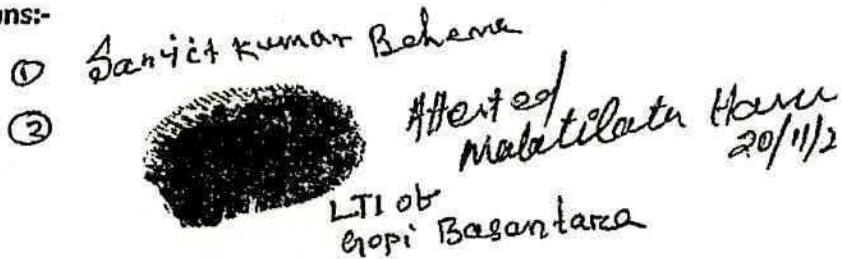 uns:-
① Sanjit Kumar Behera
② Attested
Malatilata
20/11/2
LTI of
Gopi Basantara